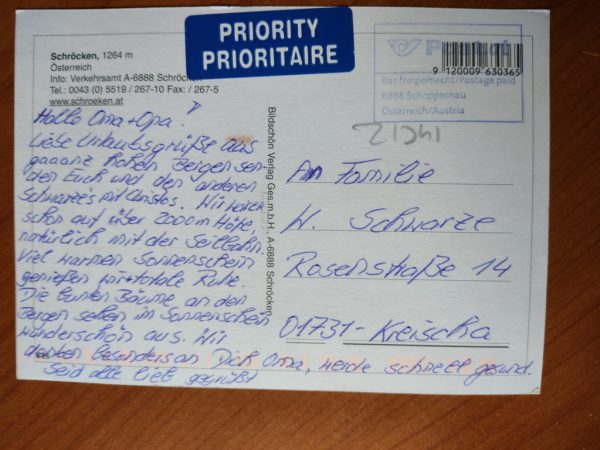 PRIORITY
PRIORITAIRE
Schröcken, 1264 m
Österreich
Info: Verkehrsamt A-6888 Schröcken
Tel.: 0043 (0) 5519 / 267-10 Fax: / 267-5
www.schroeken.at
9 120009 630365
Bar freigemacht/Postage paid
6888 Schoppernau
Österreich/Austria
Hallo Oma+Opa!
Liebe Urlaubsgrüße aus
gaaanz hohen Bergen sen-
den Euch und den anderen
Schwarze's mit Christes. Wir waren
schon auf über 2000m Höhe,
natürlich mit der Seilbahn.
Viel warmen Sonnenschein
genießen wir + totale Ruhe.
Die bunten Bäume an den
Bergen sehen im Sonnenschein
wunderschön aus. Wir
denken besonders an Dich Oma, werde schnell gesund.
Seid alle lieb gegrüßt
Bildschön Verlag Ges.m.b.H., A-6888 Schröcken
An Familie
W. Schwarze
Rosenstraße 14
01731-Kreischa